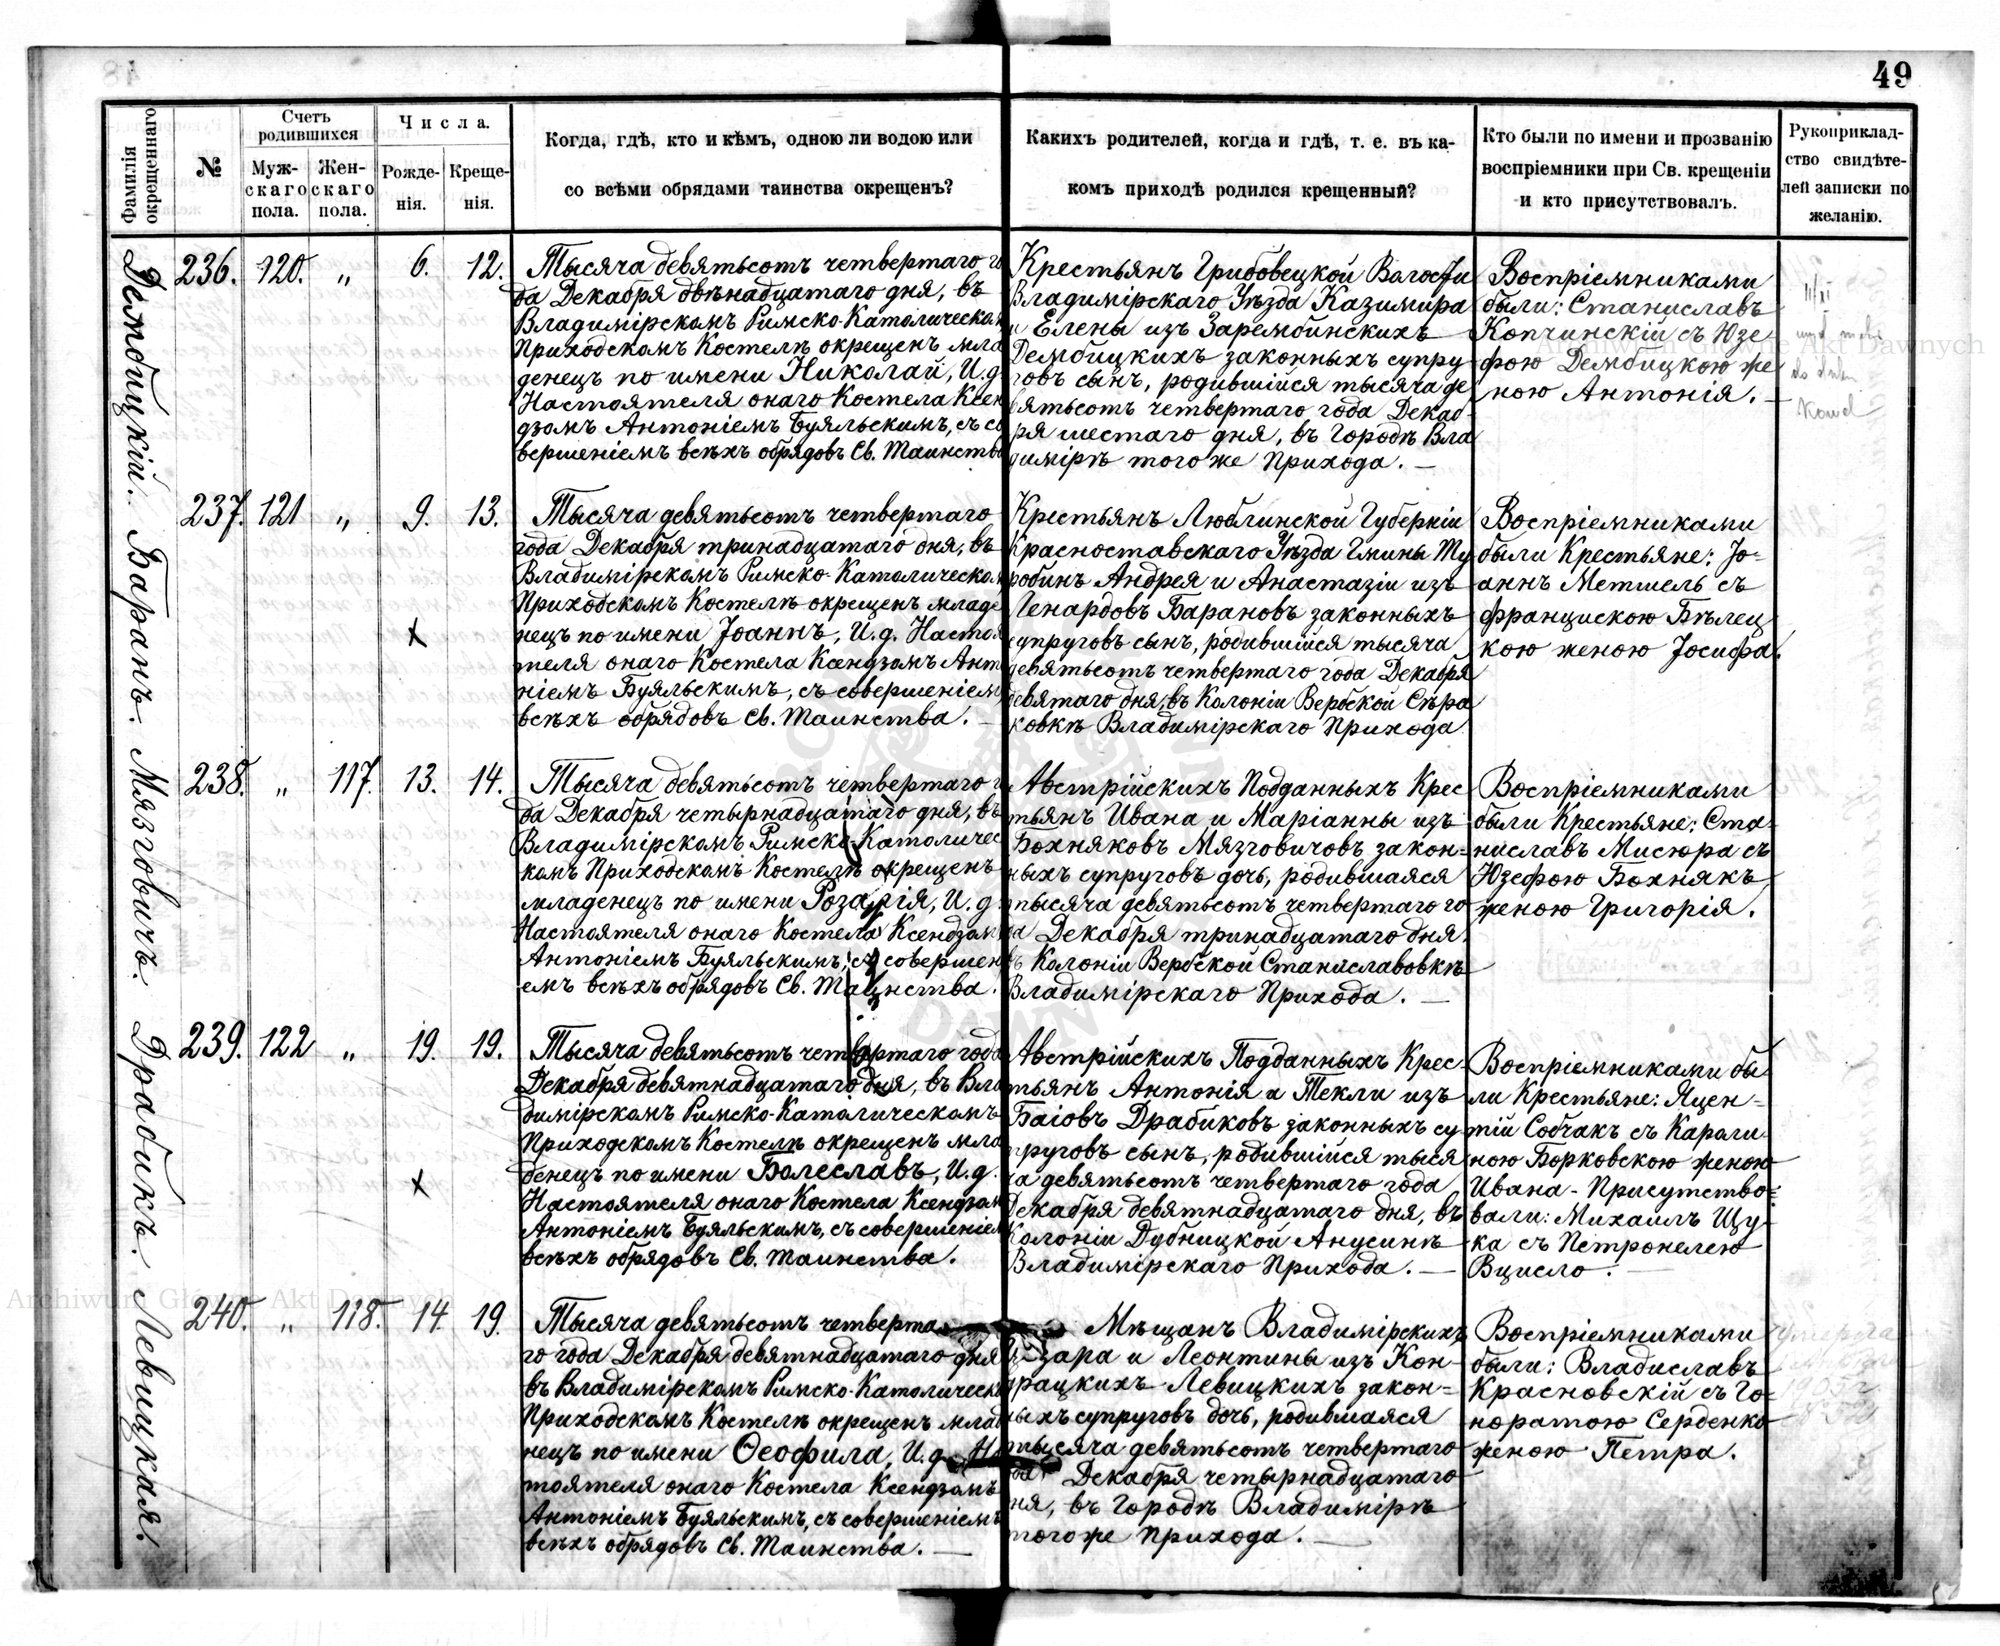 49
Фамилія окрещеннаго
№
Счетъ родившихся
Муж-
скаго
пола.
Жен-
скаго
пола.
Числа.
Рожде-
нія.
Креще-
нія.
Когда, гдѣ, кто и кѣмъ, одною ли водою или
со всѣми обрядами таинства окрещенъ?
Какихъ родителей, когда и гдѣ, т. е. въ ка-
комъ приходѣ родился крещенный?
Кто были по имени и прозванію
воспріемники при Св. крещеніи
и кто присутствовалъ.
Рукоприклад-
ство свидѣте-
лей записки по
желанію.
Дембицкій.
236. 120. „ 6. 12.
Тысяча девятьсотъ четвертаго го
да Декабря двѣнадцатаго дня, въ
Владимірскомъ Римско-Католическом
Приходскомъ Костелѣ окрещенъ мла
денецъ по имени Николай, И.д.
Настоятеля онаго Костела Ксен
дзомъ Антоніемъ Буяльскимъ, съ со
вершеніемъ всѣхъ обрядовъ Св. Таинства
Крестьянъ Грибовецкой Волости
Владимірскаго Уѣзда Казиміра
и Елены изъ Зарембинскихъ
Дембицкихъ законныхъ супру-
говъ сынъ, родившійся тысяча де
вятьсотъ четвертаго года Декаб-
ря шестаго дня, въ городѣ Вла
димірѣ того же Прихода. —
Воспріемниками
были: Станиславъ
Копчинскій съ Юзе-
фою Дембицкою же
ною Антонія. —
II/XI
Kowel
Баранъ.
237. 121 „ 9. 13.
Тысяча девятьсотъ четвертаго
года Декабря тринадцатаго дня, въ
Владимірскомъ Римско-Католическом
Приходскомъ Костелѣ окрещенъ младе
нецъ по имени Іоаннъ, И.д. Настоя
теля онаго Костела Ксендзомъ Анто
ніемъ Буяльскимъ, съ совершеніем
всѣхъ обрядовъ Св. Таинства. —
х
Крестьянъ Люблинской Губерніи
Красноставскаго Уѣзда Гмины Ту
робинъ Андрея и Анастазіи изъ
Ленардовъ Барановъ законныхъ
супруговъ сынъ, родившійся тысяча
девятьсотъ четвертаго года Декабря
девятаго дня, въ Колоніи Вербской Сѣра
ковкѣ Владимірскаго Прихода
Воспріемниками
были Крестьяне: Іо-
аннъ Метшель съ
Францискою Бѣлец
кою женою Іосифа.
Мязговичъ.
238. „ 117. 13. 14.
Тысяча девятьсотъ четвертаго г
да Декабря четырнадцатаго дня, въ
Владимірскомъ Римско-Католичес
комъ Приходскомъ Костелѣ окрещенъ
младенецъ по имени Розалія, И.д.
Настоятеля онаго Костела Ксендзом
Антоніемъ Буяльскимъ, съ совершен
емъ всѣхъ обрядовъ Св. Таинства.
Австрійскихъ Подданныхъ Крес
тьянъ Ивана и Маріанны изъ
Бохняковъ Мязговичовъ закон-
ныхъ супруговъ дочь, родившаяся
тысяча девятьсотъ четвертаго го
да Декабря тринадцатаго дня,
въ Колоніи Вербской Станиславовкѣ
Владимірскаго Прихода. —
Воспріемниками
были Крестьяне: Ста-
ниславъ Мисюра съ
Юзефою Бохнякъ,
женою Григорія.
Драбикъ.
239. 122 „ 19. 19.
Тысяча девятьсотъ четвертаго года
Декабря девятнадцатаго дня, въ Вла
димірскомъ Римско-Католическомъ
Приходскомъ Костелѣ окрещенъ мла
денецъ по имени Болеславъ, И.д.
Настоятеля онаго Костела Ксендзом
Антоніемъ Буяльскимъ, съ совершеніем
всѣхъ обрядовъ Св. Таинства.
х
Австрійскихъ Подданныхъ Крес-
тьянъ Антонія и Текли изъ
Баіовъ Драбиковъ законныхъ су
пруговъ сынъ, родившійся тыся
ча девятьсотъ четвертаго года
Декабря девятнадцатаго дня, въ
Колоніи Дубницкой Анусинѣ
Владимірскаго Прихода. —
Воспріемниками бы
ли Крестьяне: Яцен-
тій Собчакъ съ Кароли
ною Борковскою женою
Ивана - Присутство-
вали: Михаилъ Щу-
ка съ Петронелею
Вцисло. —
Левицкая.
240. „ 118. 14 19.
Тысяча девятьсотъ четверта
го года Декабря девятнадцатаго дня
въ Владимірскомъ Римско-Католическо
Приходскомъ Костелѣ окрещенъ млад
нецъ по имени Ѳеофила, И.д. На
тоятеля онаго Костела Ксендзомъ
Антоніемъ Буяльскимъ, съ совершеніемъ
всѣхъ обрядовъ Св. Таинства. —
Мѣщанъ Владимірскихъ
зара и Леонтины изъ Кон-
драцкихъ Левицкихъ закон-
ныхъ супруговъ дочь, родившаяся
тысяча девятьсотъ четвертаго
года Декабря четырнадцатаго
дня, въ городѣ Владимірѣ
того же Прихода. —
Воспріемниками
были: Владиславъ
Красновскій съ Го-
норатою Серденко
женою Петра.
умерла
1905 г.
Archiwum Główne Akt Dawnych